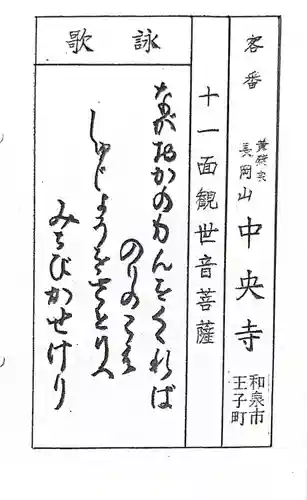 客番
黄檗宗
長岡山 中央寺
和泉市
王子町
十一面観世音菩薩
詠歌
ながおかのもんをくぐれば
のりのこゑ
しゅじょうをさとりへ
みちびかせけり